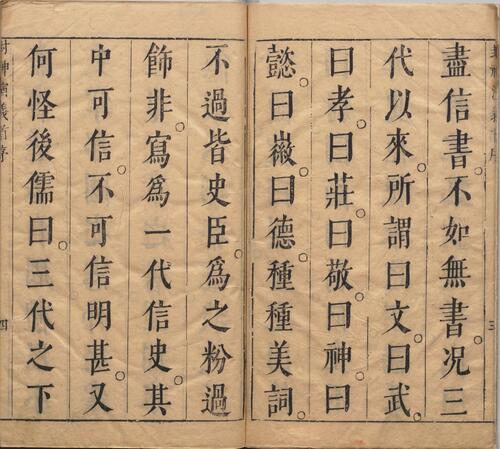 盡信書不如無書况三
代以來所謂曰文曰武
曰孝曰莊曰敬曰神曰
懿曰徽曰德種種美詞
不過皆史臣為之粉過
飾非寫為一代信史其
中可信不可信明甚又
何怪後儒曰三代之下
封神演義首序
四